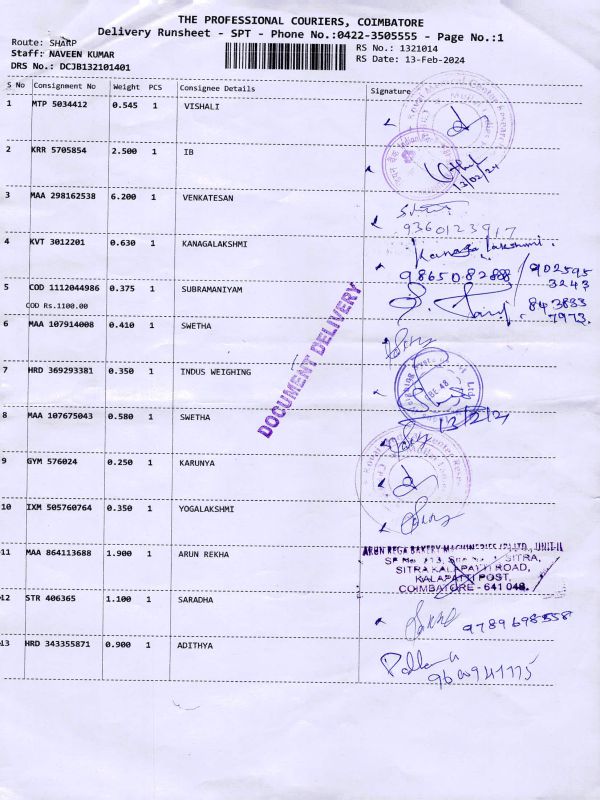 THE PROFESSIONAL COURIERS, COIMBATORE
Delivery Runsheet - SPT - Phone No.:0422-3505555 - Page No.:1
Route: SHARP
Staff: NAVEEN KUMAR
DRS No.: DCJB132101401
RS No.: 1321014
RS Date: 13-Feb-2024
S No Consignment No Weight PCS Consignee Details Signature
1 MTP 5034412 0.545 1 VISHALI
2 KRR 5705854 2.500 1 IB
13/02/24
3 MAA 298162538 6.200 1 VENKATESAN
9360123917
4 KVT 3012201 0.630 1 KANAGALAKSHMI
Kanagalakshmi.
9865082888 / 902595
3243
5 COD 1112044986 0.375 1 SUBRAMANIYAM
COD Rs.1100.00
843883
7973
6 MAA 107914008 0.410 1 SWETHA
DOCUMENT DELIVERY
7 HRD 369293381 0.350 1 INDUS WEIGHING
8 MAA 107675043 0.580 1 SWETHA
9 GYM 576024 0.250 1 KARUNYA
10 IXM 505760764 0.350 1 YOGALAKSHMI
11 MAA 864113688 1.900 1 ARUN REKHA
ARUN REGA BAKERY MACHINERIES (P) LTD., UNIT-II
SITRA,
SITRA KALAPATTI ROAD,
KALAPATTI POST,
COIMBATORE - 641 048.
12 STR 406365 1.100 1 SARADHA
9789698558
13 HRD 343355871 0.900 1 ADITHYA